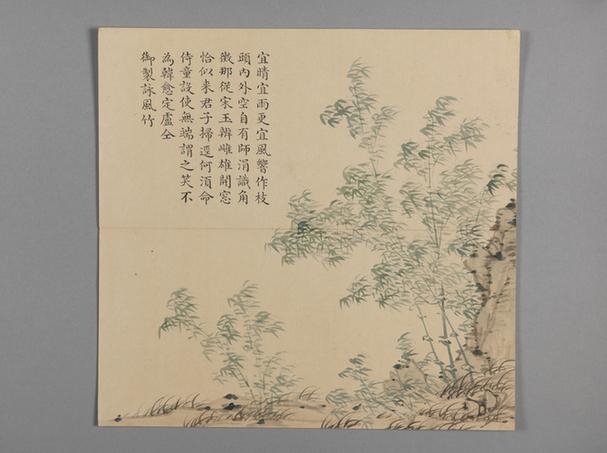 宜晴宜雨更宜風響作枝
頭內外空自有師涓識角
徵那從宋玉辨雌雄開窓
恰似来君子掃逕何湏命
侍童設使無端謂之笑不
為韓愈定盧仝
御製詠風竹